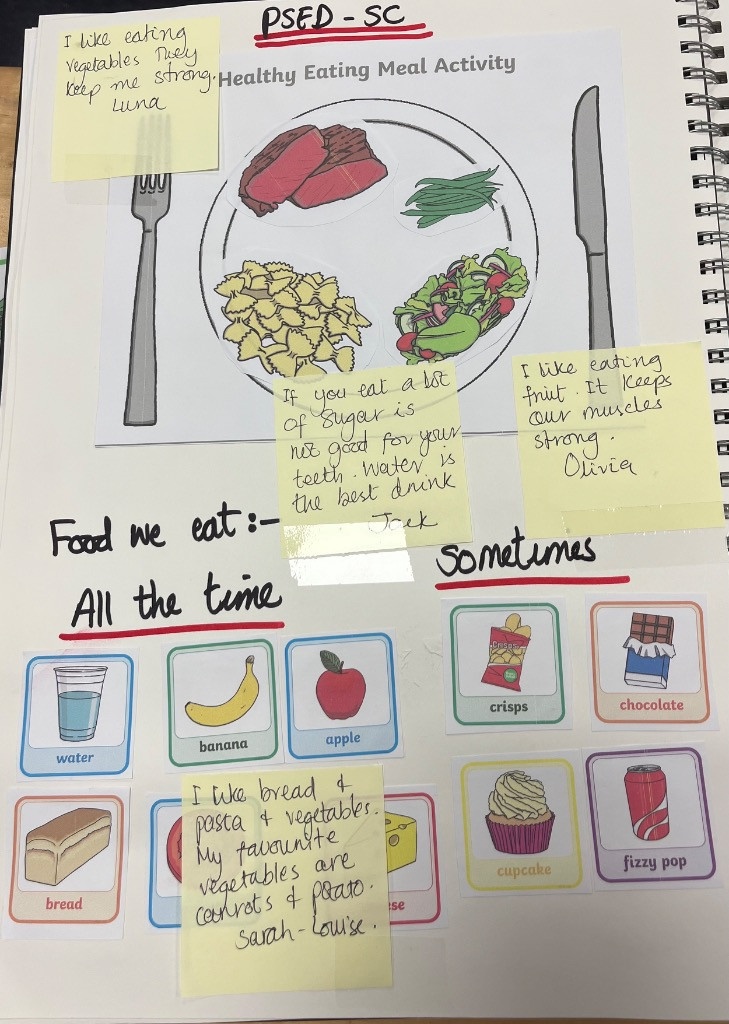 PSED - SC
I like eating
vegetables They
keep me strong.
Luna
Healthy Eating Meal Activity
If you eat a lot
of sugar is
not good for your
teeth. Water is
the best drink
Jack
I like eating
fruit. It keeps
our muscles
strong.
Olivia
Food we eat :-
All the time
Sometimes
water
banana
apple
bread
ese
I like bread &
pasta & vegetables.
My favourite
vegetables are
carrots & potato.
Sarah-Louise.
crisps
chocolate
cupcake
fizzy pop